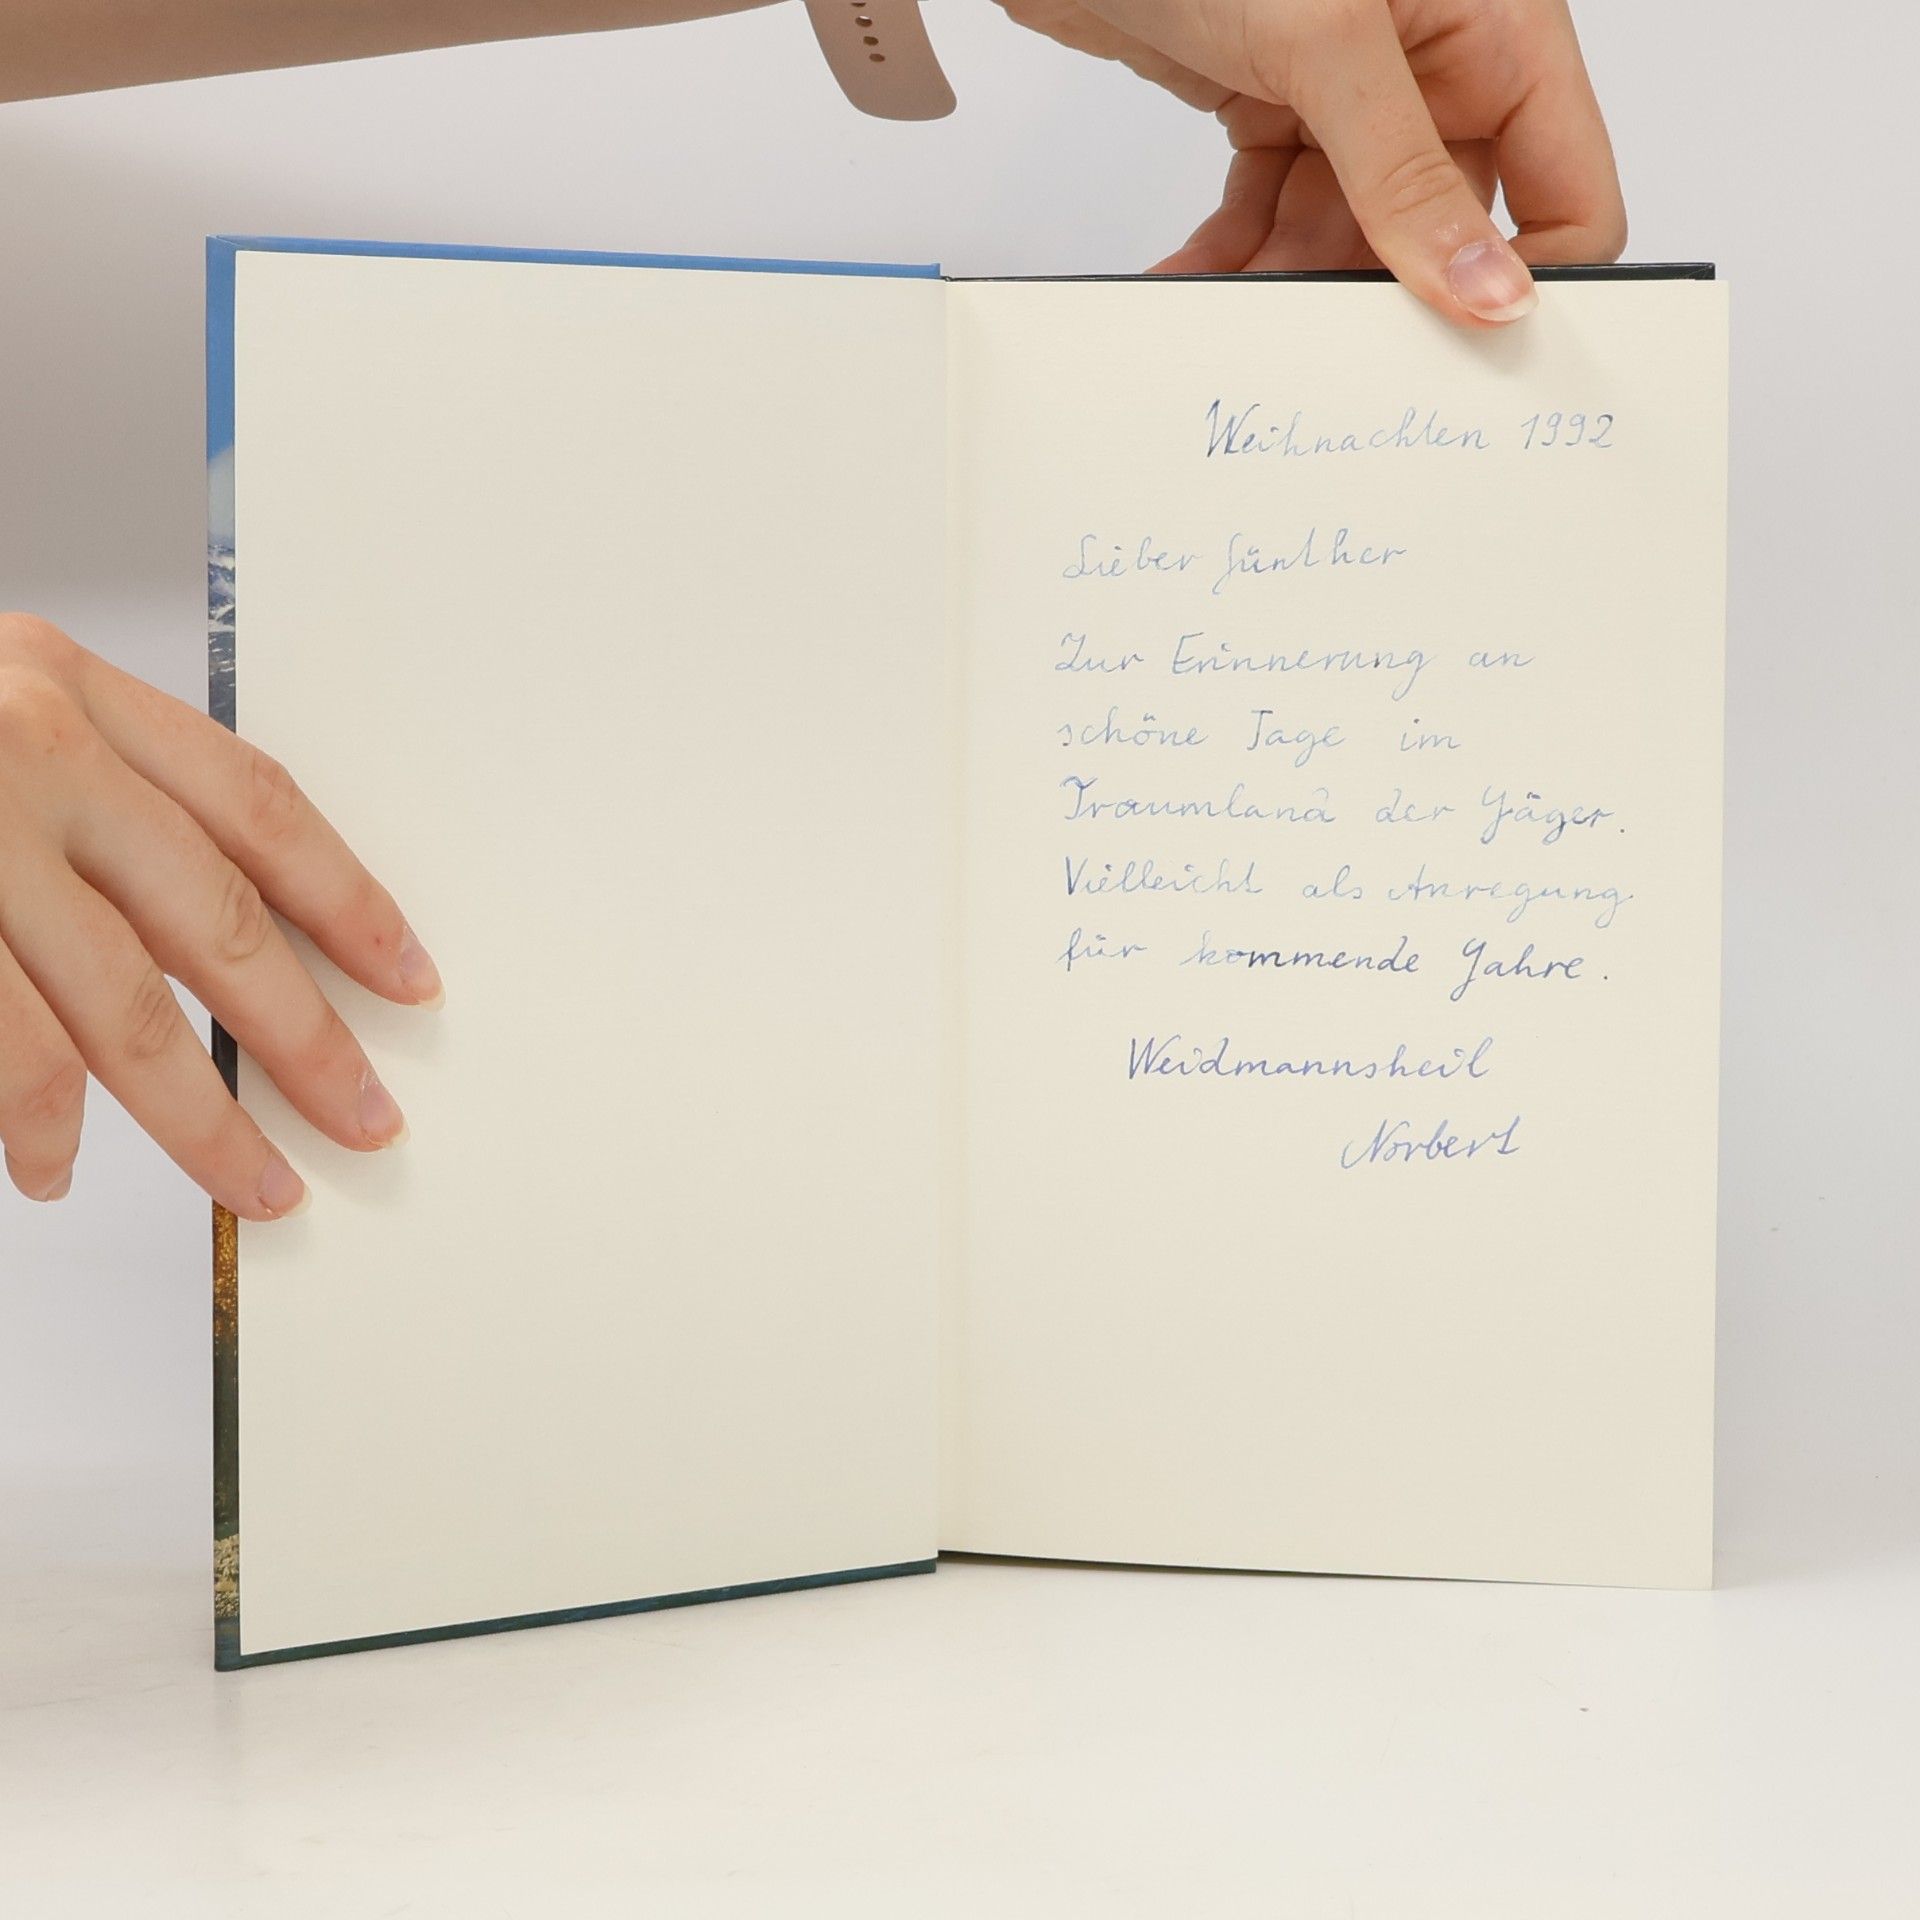 Weihnachten 1992
Lieber Günther
Zur Erinnerung an
schöne Tage im
Traumland der Jäger.
Vielleicht als Anregung
für kommende Jahre.
Weidmannsheil
Norbert